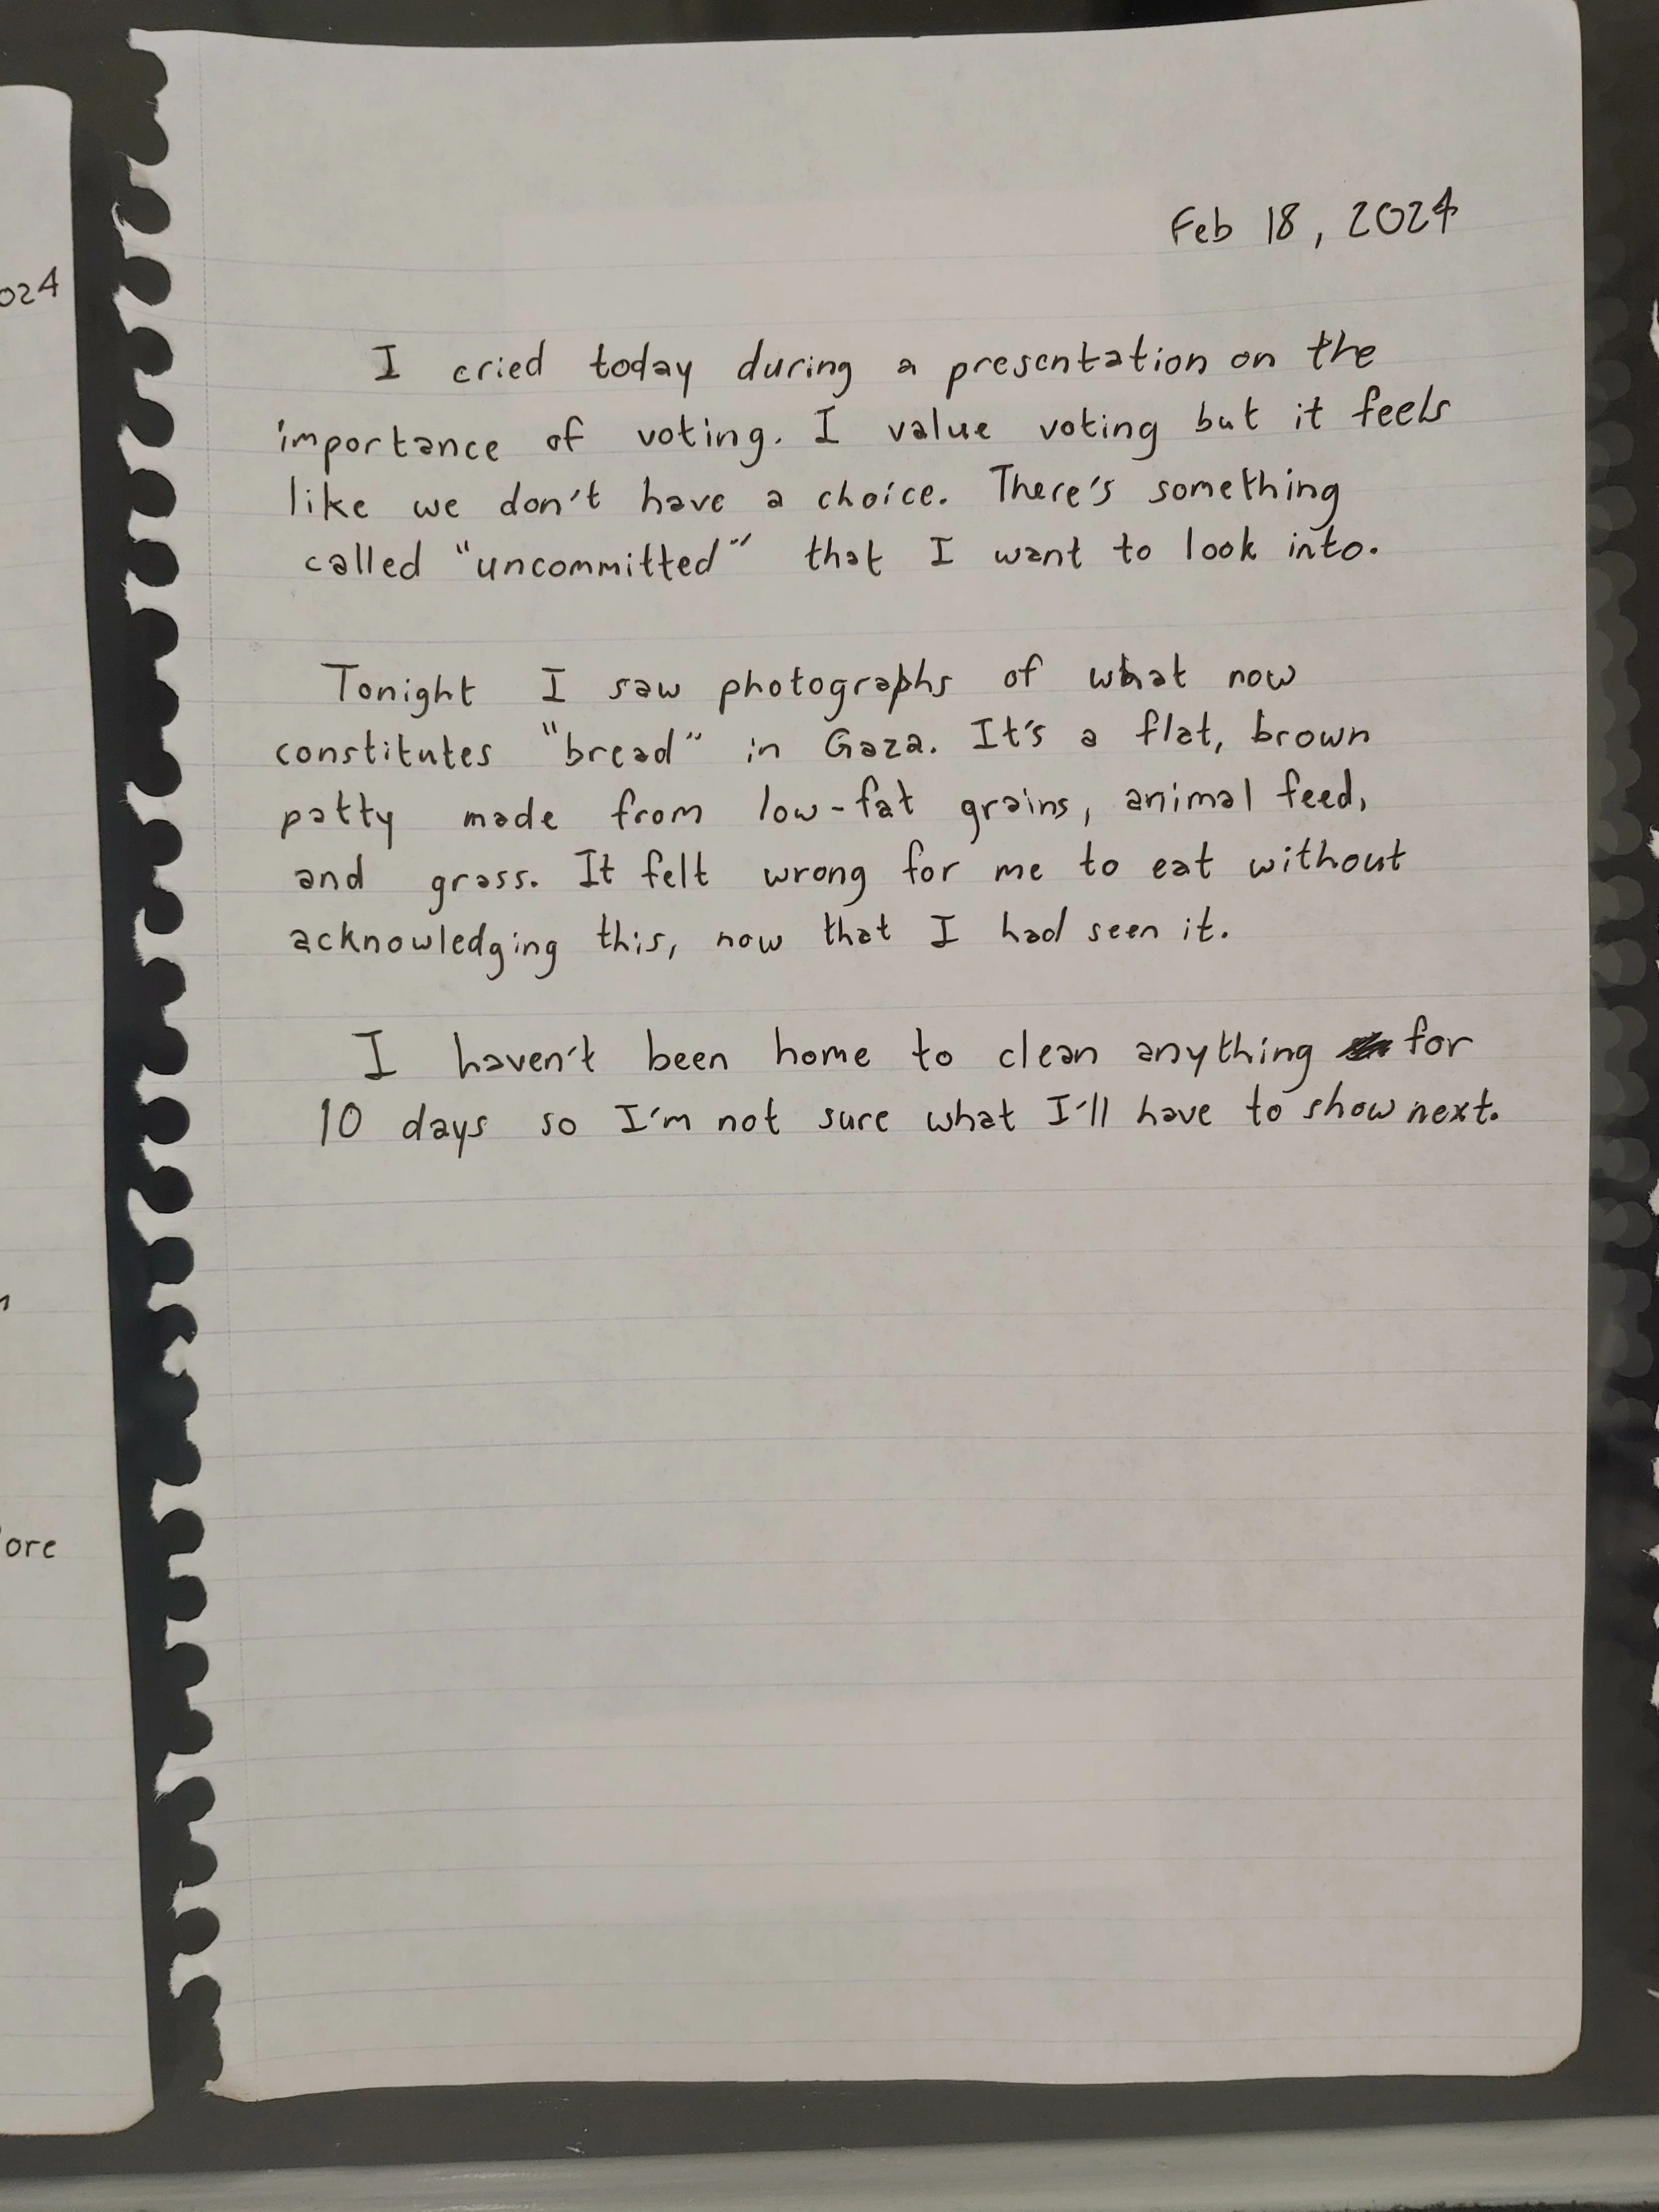 024
ore
Feb 18, 2024
I cried today during a presentation on the
importance of voting. I value voting but it feels
like we don't have a choice. There's something
called "uncommitted" that I want to look into.
Tonight I saw photographs of what now
constitutes "bread" in Gaza. It's a flat, brown
patty made from low-fat grains, animal feed,
and grass. It felt wrong for me to eat without
acknowledging this, now that I had seen it.
I haven't been home to clean anything for
10 days so I'm not sure what I'll have to show next.